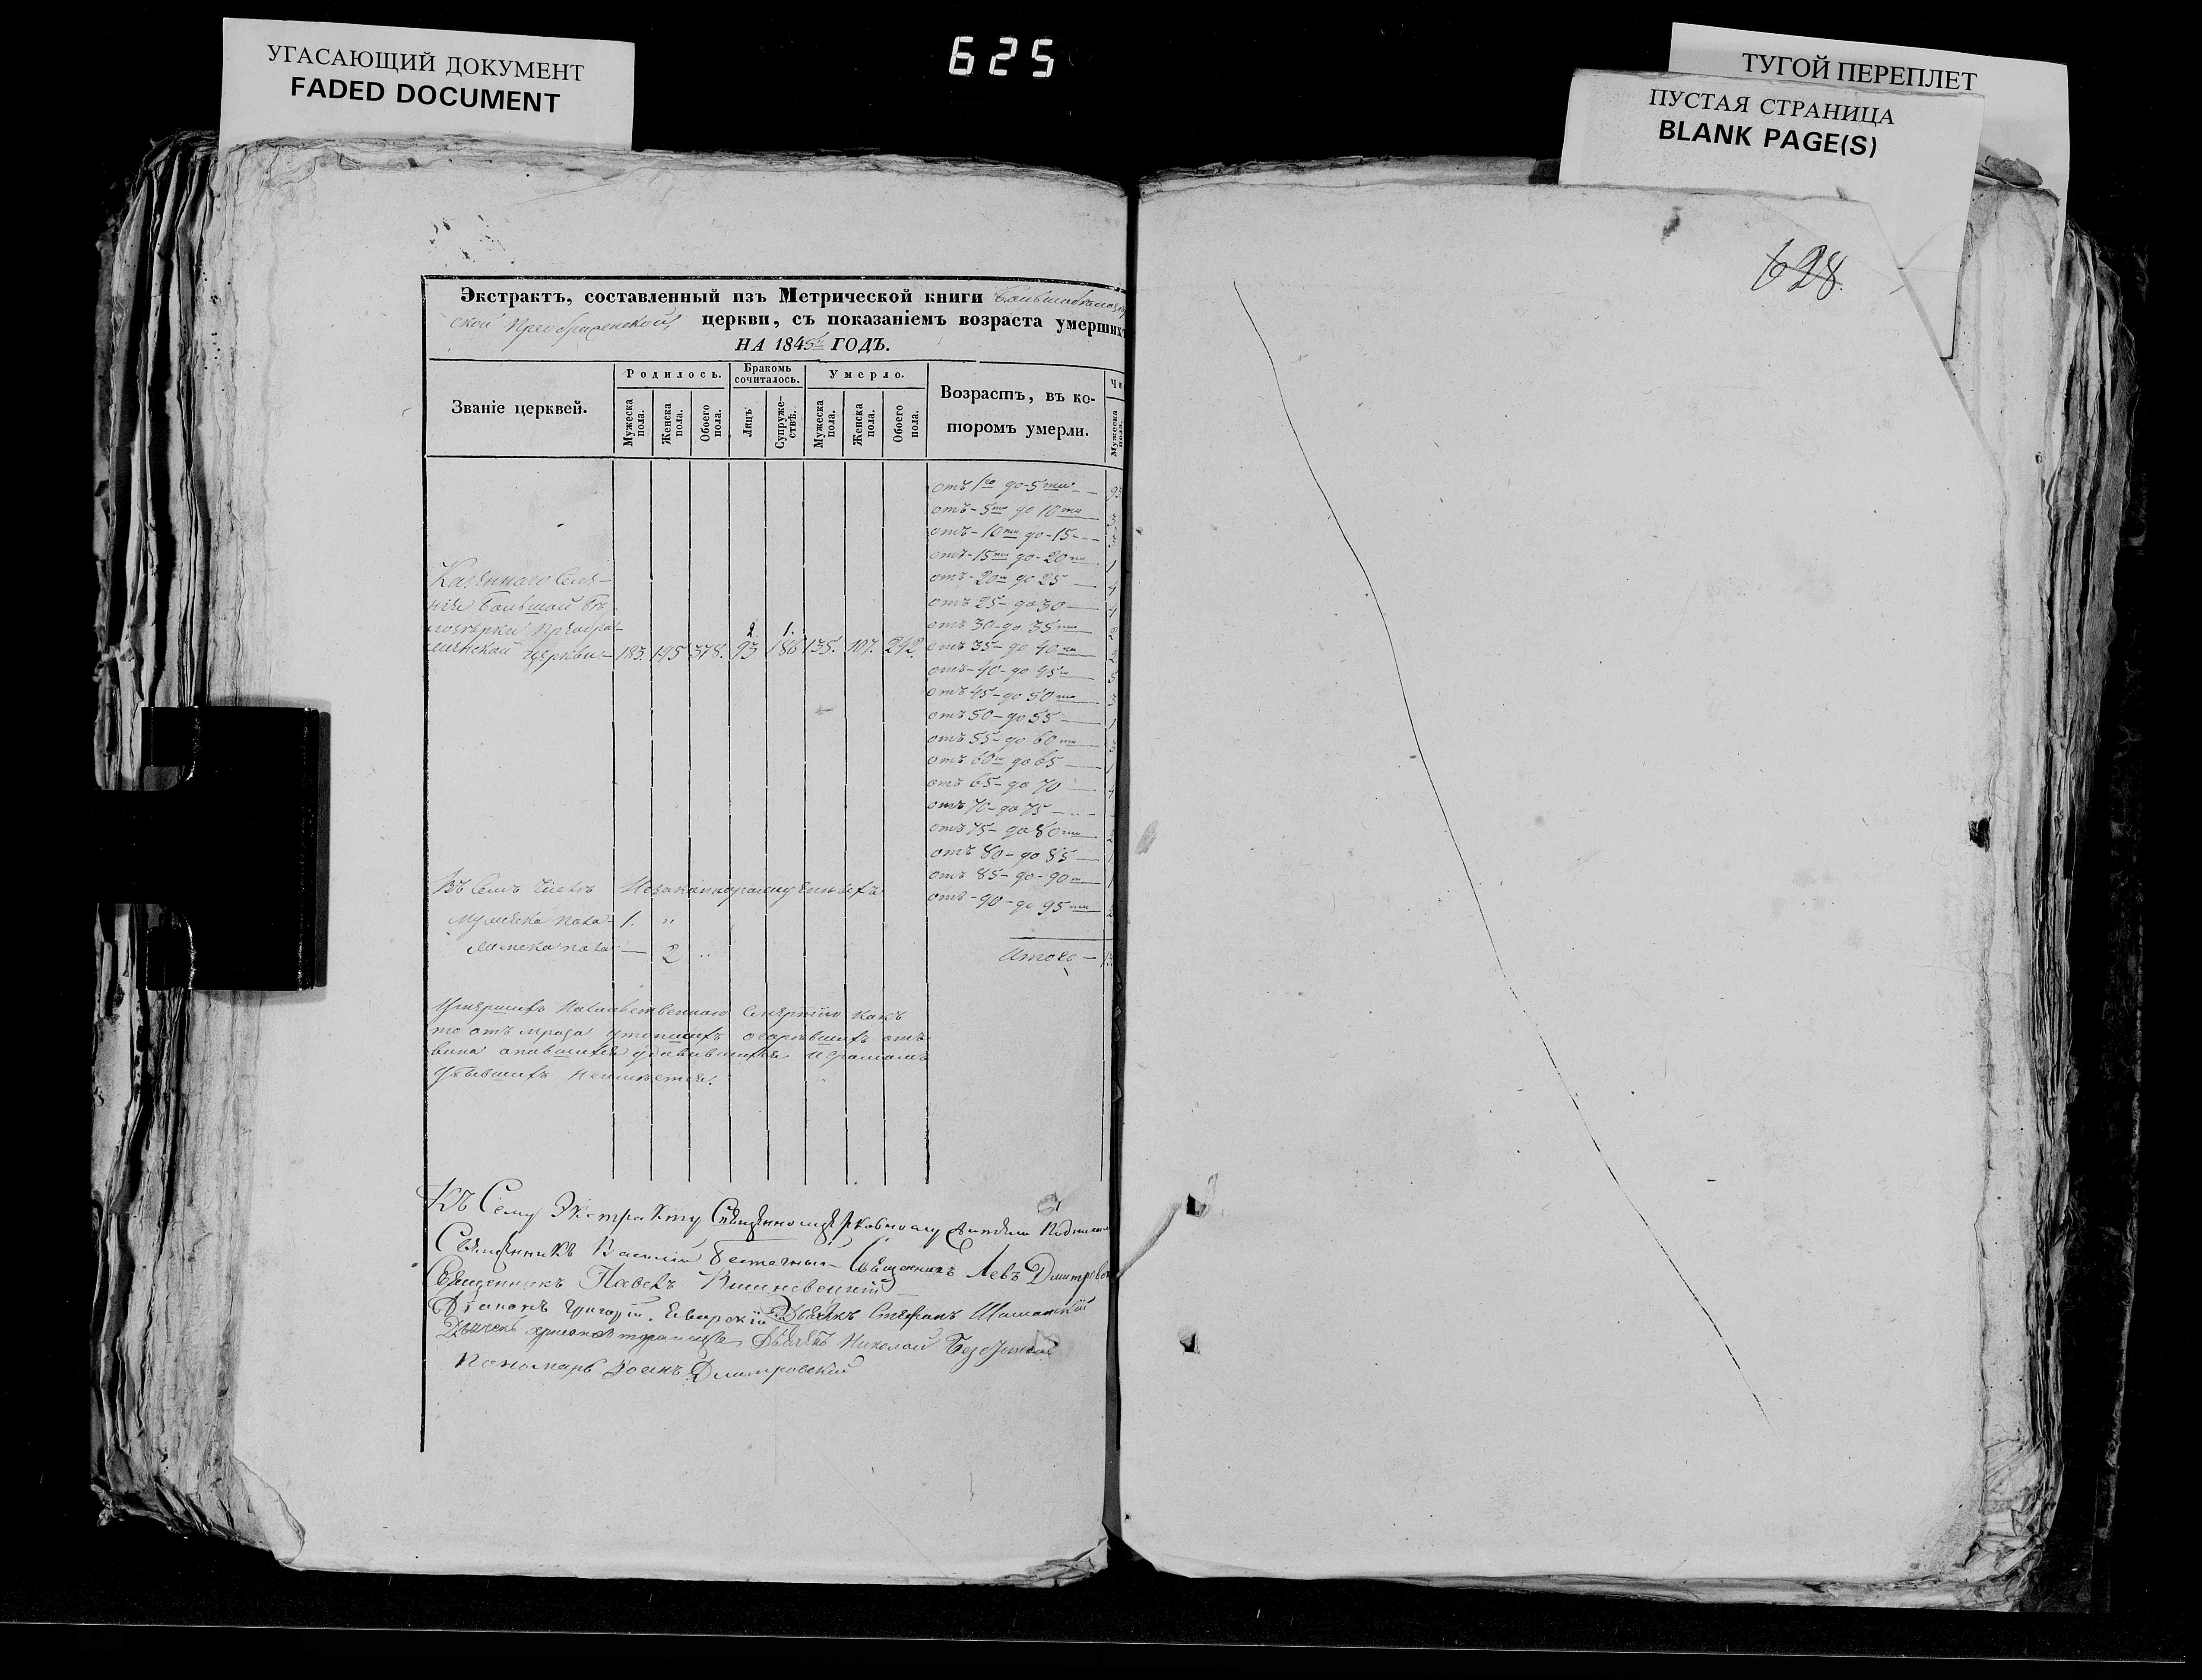 УГАСАЮЩИЙ ДОКУМЕНТ
FADED DOCUMENT
625
ТУГОЙ ПЕРЕПЛЕТ
ПУСТАЯ СТРАНИЦА
BLANK PAGE(S)
628.
Экстрактъ, составленный изъ Метрической книги
ской Преображенской церкви, съ показаніемъ возраста умершихъ
НА 1845й ГОДЪ.
Званіе церквей.
Родилось.
Бракомъ сочиталось.
Умерло.
Возрастъ, въ которомъ умерли.
Мужеска пола.
Женска пола.
Обоего пола.
Лицъ
Супружествъ.
Мужеска пола.
Женска пола.
Обоего пола.
Мужеска
отъ 1го до 5ти
отъ 5ти до 10ти 3
отъ 10ти до 15 3
отъ 15ти до 20ти 1
отъ 20ти до 25 4
отъ 25 до 30 4
отъ 30 до 35ти 2
отъ 35 до 40ти 2
отъ 40 до 45ти 5
отъ 45 до 50ти 3
отъ 50 до 55 1
отъ 55 до 60ти 3
отъ 60ти до 65 1
отъ 65 до 70 4
отъ 70 до 75
отъ 75 до 80ти 2
отъ 80 до 85 1
отъ 85 до 90ти 1
отъ 90 до 95ти 2
Итого
Казеннаго Селе-
нія Большой Бѣ-
лозерки Преобра-
женской Церкви 183. 195 378. 93 186 135. 107. 242.
2. 1.
Въ семъ числѣ Незаконнорожденныхъ
Мужеска пола 1. "
Женска пола — 2 "
Умершихъ Насильственною Смертію какъ
то отъ мраза утопшихъ огорѣвшихъ отъ
вина опившихся удавившихся и громомъ
убывшихъ неимѣется.
Къ Сему Экстракту Священноцерковнослужители
Священникъ Василій Священникъ Левъ Дмитровскій
Священникъ Павелъ Вишневецкій
Діаконъ Григорій Дьячекъ Стефанъ
Дьячекъ Дьячекъ Николай
Пономарь Іоанъ Дмитровскій